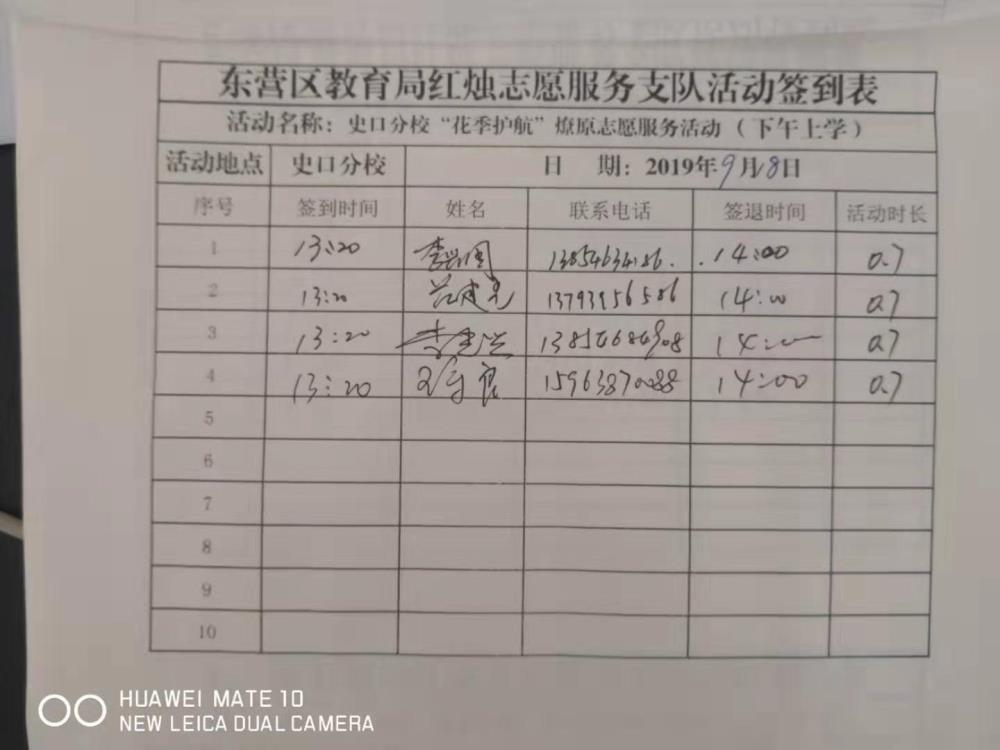 东营区教育局红烛志愿服务支队活动签到表
活动名称：史口分校“花季护航”燎原志愿服务活动（下午上学）
活动地点 史口分校 日 期：2019年9月18日
序号 签到时间 姓名 联系电话 签退时间 活动时长
1 13:20 14:00 0.7
2 13:20 13793956586 14:00 0.7
3 13:20 14:00 0.7
4 13:20 15963870288 14:00 0.7
5
6
7
8
9
10
HUAWEI MATE 10
NEW LEICA DUAL CAMERA